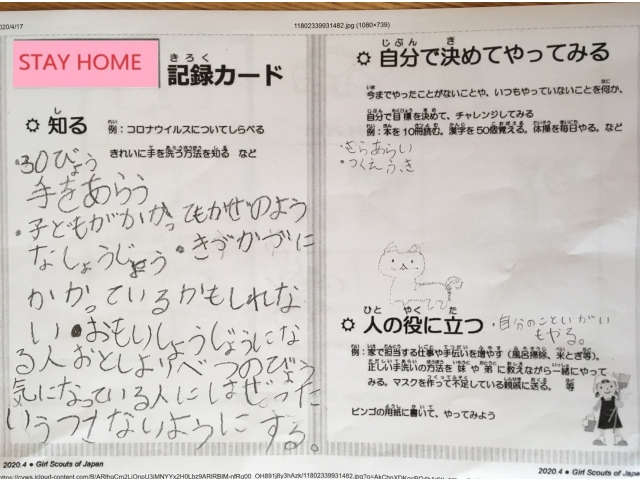 2020/4/17
11802339931482.jpg (1080×739)
STAY HOME
きろく
記録カード
し
知る
例：コロナウイルスについてしらべる
きれいに手を洗う方法を知る など
・30びょう
手をあらう
・子どもがかかってもかぜのよう
なしょうじょう・きづかづに
かかっているかもしれな
い・おもいしょうじょうにな
る人おとしよりべつのびょう
気になっている人にはぜったい
いうつさないようにする。
2020.4 ● Girl Scouts of Japan
じぶん き
自分で決めてやってみる
今までやったことがないことや、いつもやっていないことを何か、
自分で目標を決めて、チャレンジしてみる
例：本を10冊読む。漢字を50個覚える。体操を毎日やる。など
・さらあらい
・つくえふき
ひと やく た
人の役に立つ
・自分のこといがい
もやる。
例：家で担当する仕事や手伝いを増やす（風呂掃除、米とぎ等）。
正しい手洗いの方法を妹や弟に教えながら一緒にやって
みる。マスクを作って不足している親戚に送る。 等
ビンゴの用紙に書いて、やってみよう
2020.4 ● Girl Scouts of Japan